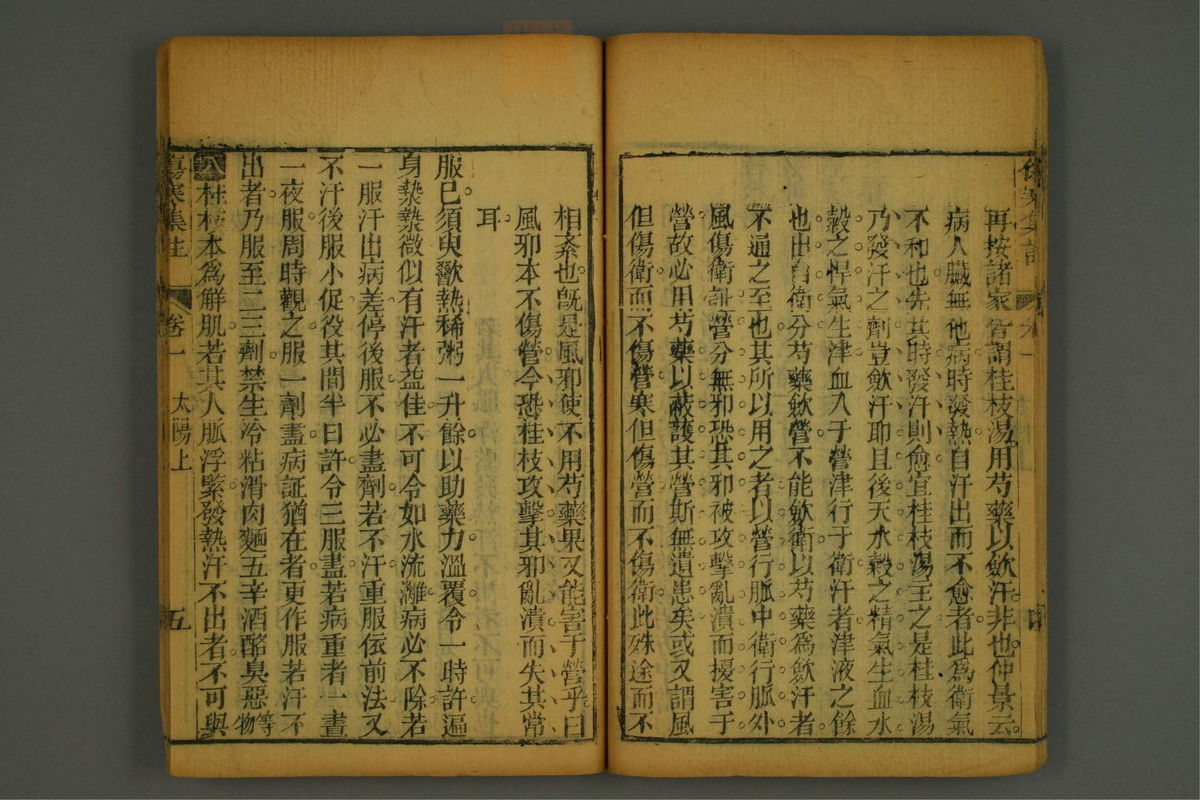 再按諸家皆謂桂枝湯用芍藥以歛汗非也仲景云
病人臟無他病時發熱自汗出而不愈者此爲衛氣
不和也先其時發汗則愈宜桂枝湯主之是桂枝湯
乃發汗之劑豈歛汗耶且後天水穀之精氣生血水
穀之悍氣生津血入于營津行于衛汗者津液之餘
也由自衛分芍藥歛營不能歛衛以芍藥爲歛汗者
不通之至也其所以用之者以營行脈中衛行脈外
風傷衛証營分無邪恐其邪被攻擊亂潰而擾害于
營故必用芍藥以蔽護其營斯無遺患矣或又謂風
但傷衛而不傷營寒但傷營而不傷衛此殊途而不
相紊也旣是風邪使不用芍藥果又能害于營乎曰
風邪本不傷營今恐桂枝攻擊其邪亂潰而失其常
耳
服已須臾歠熱稀粥一升餘以助藥力溫覆令一時許遍
身漐漐微似有汗者益佳不可令如水流漓病必不除若
一服汗出病差停後服不必盡劑若不汗重服依前法又
不汗後服小促役其間半日許令三服盡若病重者一晝
一夜服周時觀之服一劑盡病証猶在者更作服若汗不
出者乃服至二三劑禁生冷粘滑肉麵五辛酒酪臭惡等物
八 桂枝本爲解肌若其人脈浮緊發熱汗不出者不可與
傷寒集註 卷一 太陽上 五